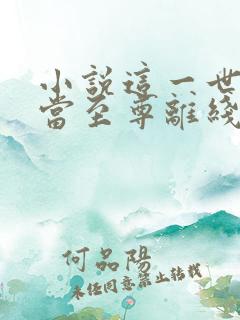 小說這一世
當至尊離綫
何品陽
未經同意禁止轉載